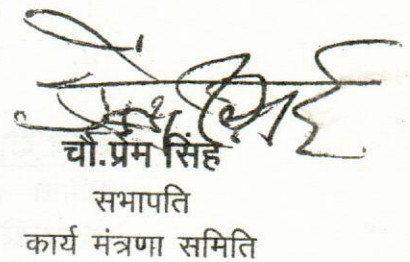 चौ.प्रेम सिंह
सभापति
कार्य मंत्रणा समिति